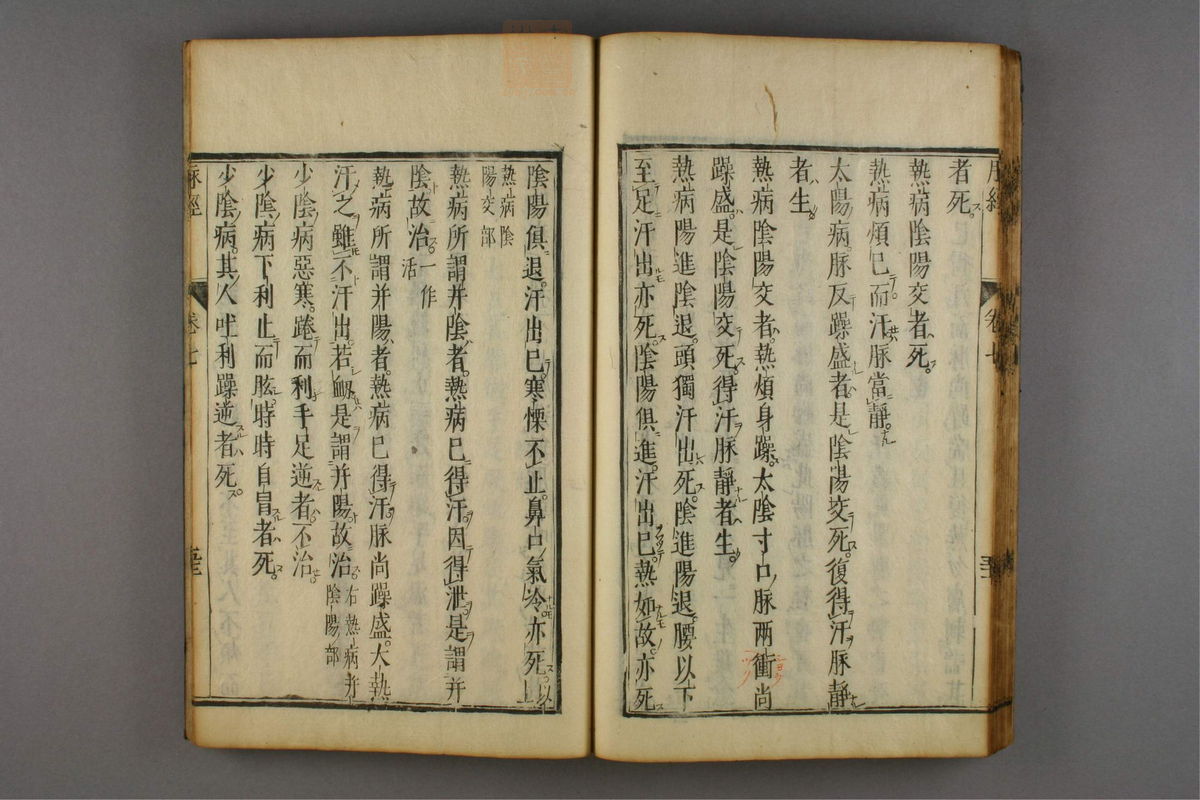 脉經 卷七
者死
熱病陰陽交者死
熱病煩已而汗脉當靜
太陽病脉反躁盛者是陰陽交死復得汗脉靜
者生
熱病陰陽交者熱煩身躁太陰寸口脉兩衝尚
躁盛是陰陽交死得汗脉靜者生
熱病陽進陰退頭獨汗出死陰進陽退腰以下
至足汗出亦死陰陽俱進汗出已熱如故亦死
陰陽俱退汗出已寒慄不止鼻口氣冷亦死以上
熱病陰
陽交部
熱病所謂并陰者熱病已得汗因得泄是謂并
陰故治一作活
熱病所謂并陽者熱病已得汗脉尚躁盛大熱
汗之雖不汗出若衂是謂并陽故治右熱病并陰陽部
少陰病惡寒踡而利手足逆者不治
少陰病下利止而眩時時自冒者死
少陰病其人吐利躁逆者死
脉經 卷七